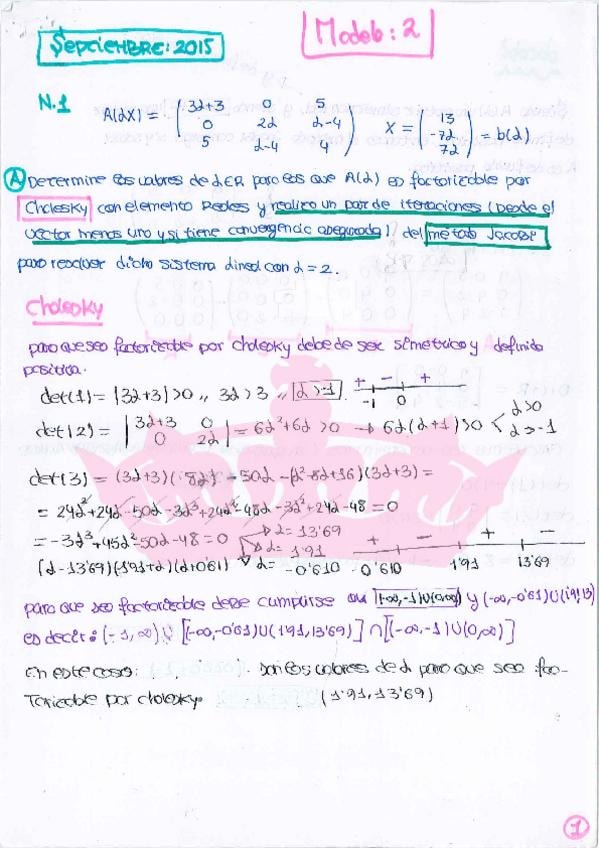 Septiembre: 2015
Modelo: 2
N.1 A(αX) = ( 3α+3 0 5 ; 0 2α α-4 ; 5 α-4 4 ) X = ( 13 ; -7α ; 7α ) = b(α)
A Determine los valores de α∈R para los que A(α) es factorizable por
Cholesky con elemento Reales y realice un par de iteraciones (Desde el
vector menos uno y si tiene convergencia asegurada) del método Jacobi
para resolver dicho sistema lineal con α = 2.
Cholesky
para que sea factorizable por cholesky debe de ser simetrico y definido
positiva.
det(1) = |3α+3| > 0 ,, 3α > 3 , α > -1 + - + -1 0
det(2) = | 3α+3 0 ; 0 2α | = 6α²+6α > 0 → 6α(α+1) > 0 α>0 α>-1
det(3) = (3α+3)( 8α) - 50α - (α²-8α+16)(3α+3) =
= 24α²+24α-50α-3α³+24α²-48α-3α²+24α-48 = 0
= -3α³+45α²-50α-48 = 0 α = 13'69 α = 1'91
(α-13'69)(1'91+α)(α+0'61) α = -0'610 + - + - -0'610 1'91 13'69
para que sea factorizable debe cumplirse (-∞,-1)∪(0,∞) y (-∞,-0'61)∪(1'9,13)
es decir: (-1,∞) ∪ [(-∞,-0'61)∪(1'91,13'69)] ∩ [(-∞,-1)∪(0,∞)]
En este caso: son los valores de α para que sea fac-
torizable por cholesky (1'91,13'69)
1